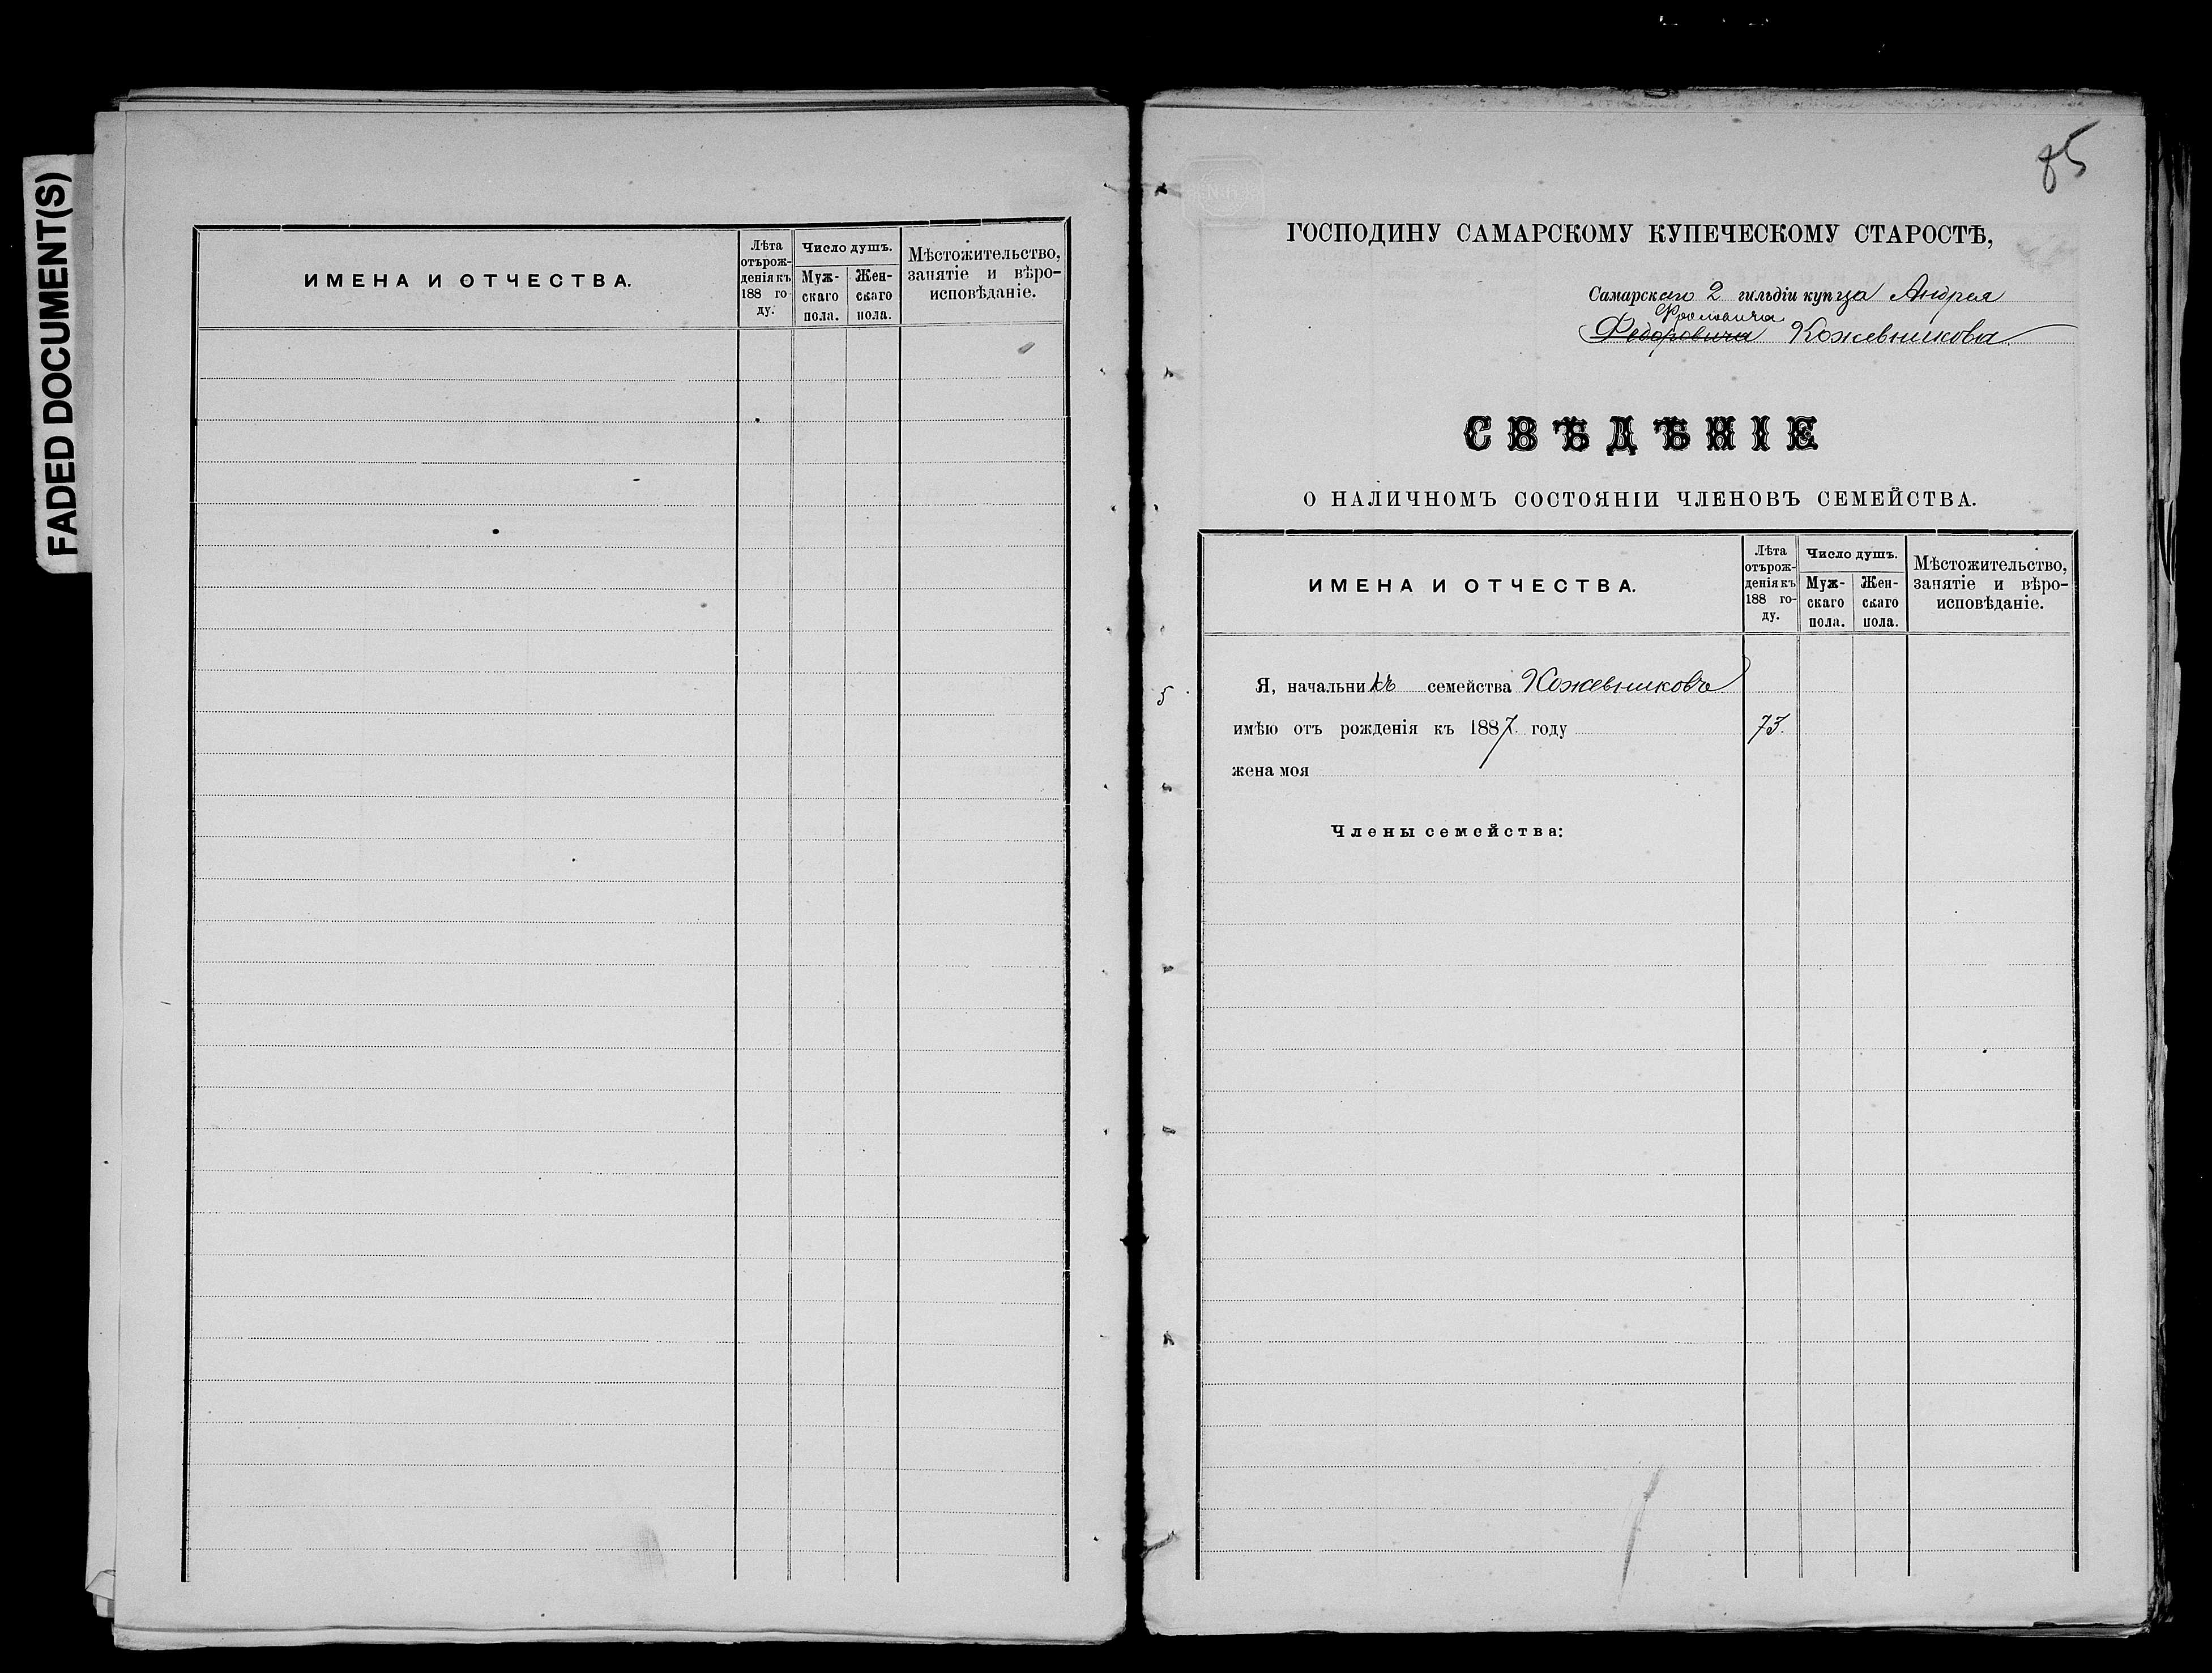 FADED DOCUMENT(S)
ИМЕНА И ОТЧЕСТВА.
Лѣта
отърож-
денія къ
188 го-
ду.
Число душъ.
Муж-
скаго
пола.
Жен-
скаго
пола.
Мѣстожительство,
занятіе и вѣро-
исповѣданіе.
85
ГОСПОДИНУ САМАРСКОМУ КУПЕЧЕСКОМУ СТАРОСТѢ,
Самарскаго 2 гильдіи купца Андрея
Фроловича
Федоровича Кожевникова
СВѢДѢНІЕ
О НАЛИЧНОМЪ СОСТОЯНІИ ЧЛЕНОВЪ СЕМЕЙСТВА.
ИМЕНА И ОТЧЕСТВА.
Лѣта
отърож-
денія къ
188 го-
ду.
Число душъ.
Муж-
скаго
пола.
Жен-
скаго
пола.
Мѣстожительство,
занятіе и вѣро-
исповѣданіе.
5
Я, начальникъ семейства Кожевниковъ
имѣю отъ рожденія къ 1887 году 73.
жена моя
Члены семейства: